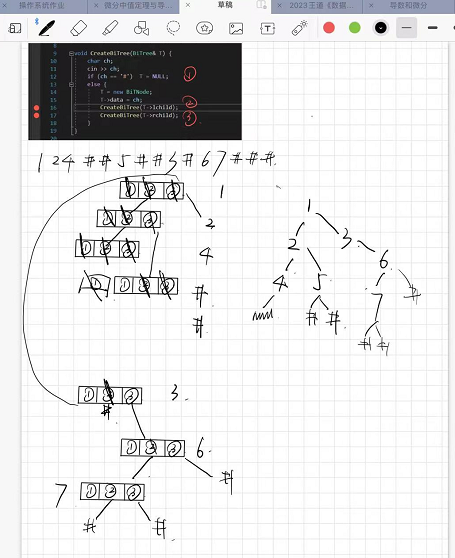 操作系统作业
微分中值定理与导...
草稿
2023王道《数据...
导数和微分
void CreateBiTree(BiTree& T) {
char ch;
cin >> ch;
if (ch == '#') T = NULL; ①
else {
T = new BiTNode;
T->data = ch; ②
CreateBiTree(T->lchild);
CreateBiTree(T->rchild); ③
}
}
1 2 4 # # 5 # # 3 # 6 7 # # #
① ② ③ 1
① ② ③ 2
① ② ③ 4
① ① ② ③ #
#
① ② ③ 3
#
① ② ③ 6
#
7 ① ② ③
# #
1
2 3
4 5 6
null # # 7 #
# #